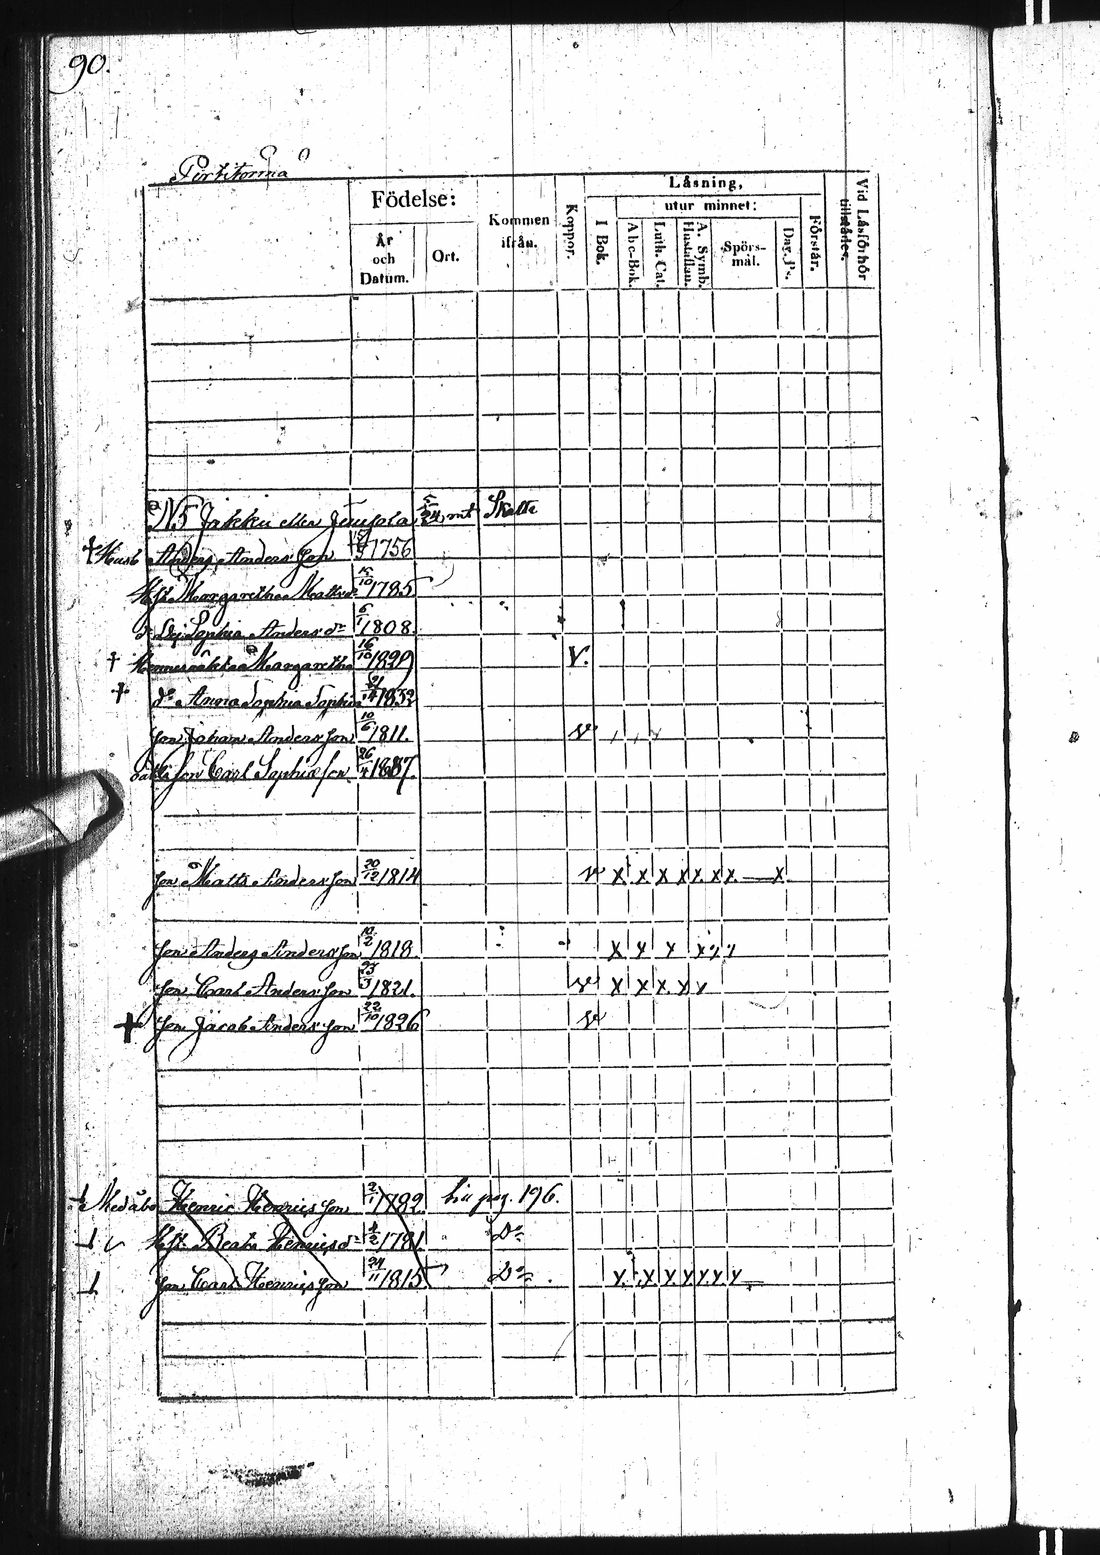 90.
Pirtitorma
Födelse:
År och Datum.
Ort.
Kommen ifrån.
Koppor.
Läsning,
I Bok.
utur minnet:
Abc-Bok.
Luth. Cat.
A. Symb. Hustaflan.
Spörs-mål.
Dav. Ps.
Förstår.
Vid Läsförhör tillstädes.
N5 Jakku eller 5/24 mt Skatte
† Husb Anders Andersson 1756
Hst Margaretha Matts dr /10 1785
dr Sophia Anders dr 6/1 1808.
† Hennes Margaretha 16/10 1829 V.
† dr Anna Sophia Sophia 21/ 1832
Son Johan Andersson 10/6 1811. v
Son Carl Sophiæ son 26/4 1837.
Son Matts Andersson 20/12 1814 v x x x x x x x — x
Son Anders Andersson 10/2 1818. x x x x x x
Son Carl Andersson 23/3 1821. v x x x x x
† Son Jacob Andersson 22/10 1826 v
Henric Henricsson 2/1 1782. hit pag. 196.
Hst Beata Henrics dr /2 1781. Do
Son Carl Henricsson 24/11 1815 Do x x x x x x x —